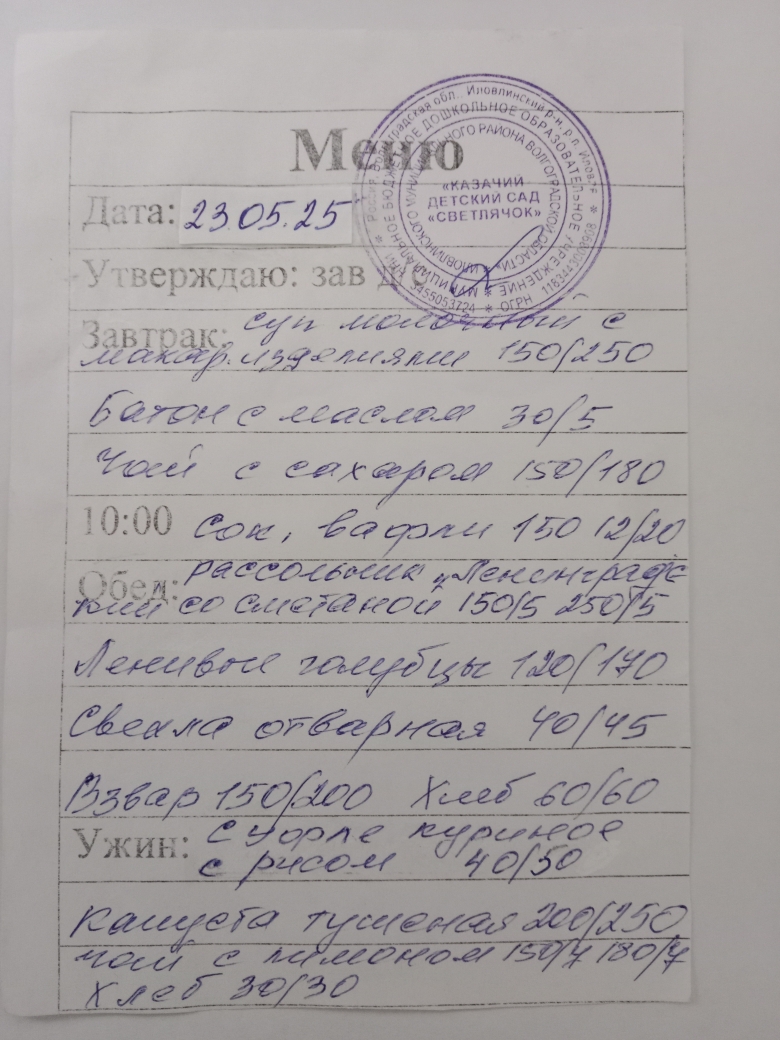 Меню
Россия, Волгоградская обл. Иловлинский р-н, р.п. Иловля
МУНИЦИПАЛЬНОЕ БЮДЖЕТНОЕ ДОШКОЛЬНОЕ ОБРАЗОВАТЕЛЬНОЕ УЧРЕЖДЕНИЕ
ИЛОВЛИНСКОГО МУНИЦИПАЛЬНОГО РАЙОНА ВОЛГОГРАДСКОЙ ОБЛАСТИ
«КАЗАЧИЙ
ДЕТСКИЙ САД
«СВЕТЛЯЧОК»
ОГРН
Дата: 23.05.25
Утверждаю: зав д/с
Завтрак: суп молочный с
макар. изделиями 150/250
Батон с маслом 30/5
Чай с сахаром 150/180
10:00 Сок, вафли 150 12/20
Обед: рассольник „Ленинградс
кий со сметаной 150/5 250/5
Ленивые голубцы 120/170
Свекла отварная 40/45
Взвар 150/200 Хлеб 60/60
Ужин: Суфле куриное
с рисом 40/50
Капуста тушеная 200/250
Чай с лимоном 150/7 180/7
Хлеб 30/30